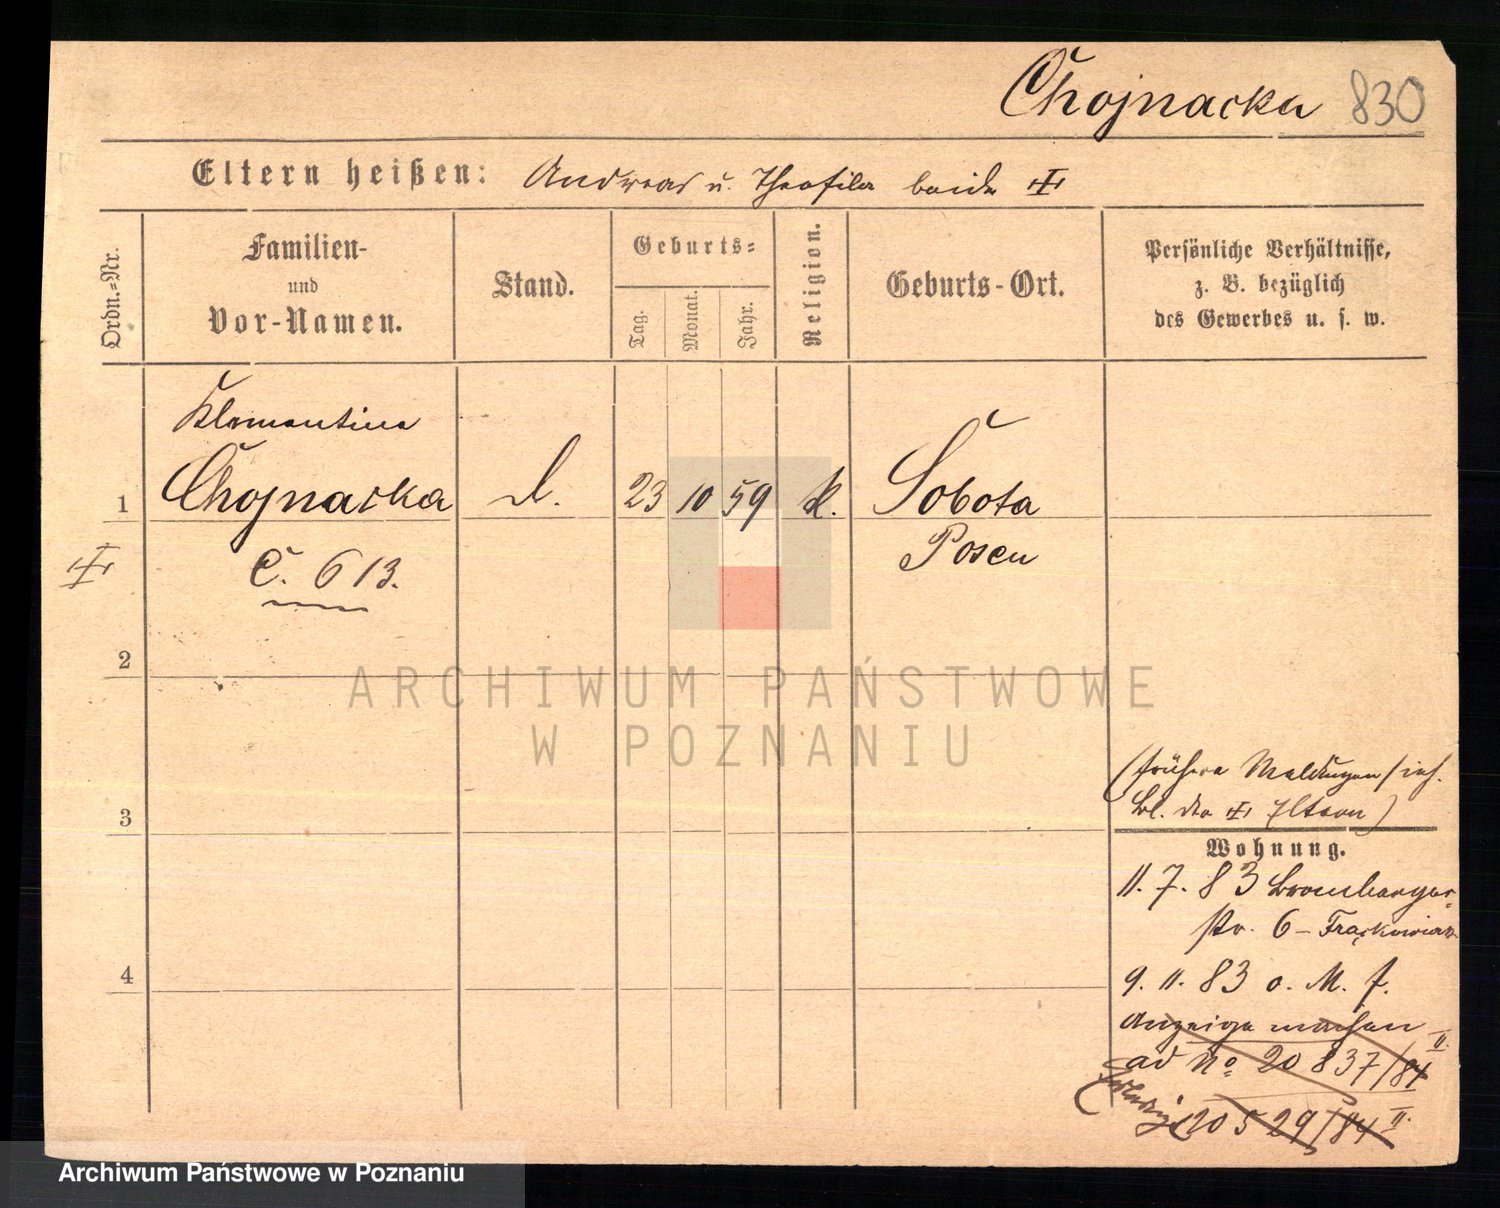 Chojnacka 830
Eltern heißen: Andreas u. Theofila beide
Ordn.-Nr.
Familien-
und
Vor-Namen.
Stand.
Geburts-
Tag.
Monat.
Jahr.
Religion.
Geburts-Ort.
Persönliche Verhältnisse,
z. B. bezüglich
des Gewerbes u. s. w.
Klementina
1 Chojnacka d. 23 10 59 k. Sobota
Posen
C. 613.
2
ARCHIWUM PAŃSTWOWE
W POZNANIU
(frühere Meldungen
Bl. der Eltern)
3
Wohnung.
11. 7. 83 Bromberger-
str. 6 – Frąckowiak
4
9. 11. 83 o. M. f.
Anzeige machen
ad No 20 837/84 II.
Erledigt 20 529/84 II.
Archiwum Państwowe w Poznaniu